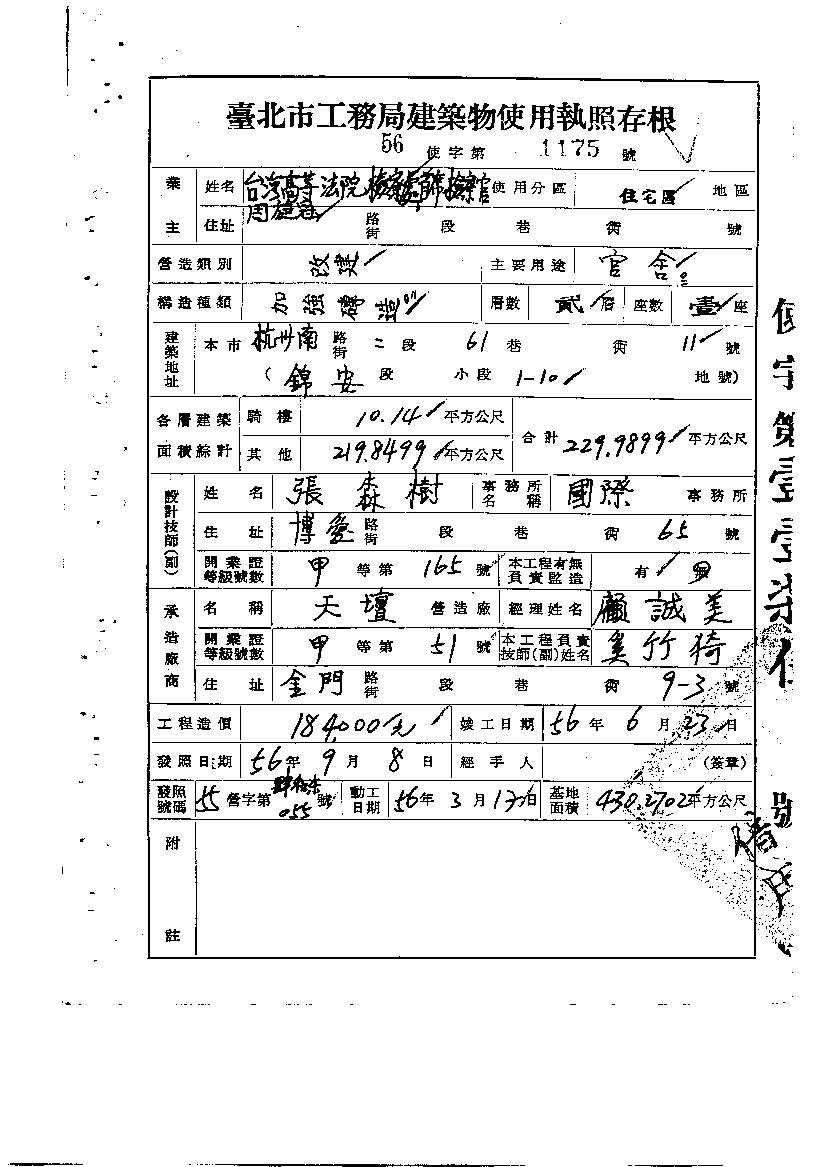 臺北市工務局建築物使用執照存根
56 使字第 1175 號
業主 姓名 台灣高等法院檢察處 使用分區 住宅區 地區
住址 路街 段 巷 衖 號
營造類別 改建 主要用途 官舍
構造種類 加強磚造 層數 貳層 座數 壹座
建築地址 本市 杭州南 路街 二段 61巷 衖 11號
(錦安段 小段 1-10 地號)
各層建築面積綜計 騎樓 10.14 平方公尺 合計 229.9899 平方公尺
其他 219.8499 平方公尺
設計技師(副) 姓名 張森樹 事務所名稱 國際 事務所
住址 博愛 路街 段 巷 衖 65號
開業證等級號數 甲等第 165 號 本工程有無負責監造 有 無
承造廠商 名稱 天壇 營造廠 經理姓名 顧誠美
開業證等級號數 甲等第 51 號 本工程負責技師(副)姓名 吳竹猗
住址 金門 路街 段 巷 衖 9-3 號
工程造價 184,000元 竣工日期 56年6月23日
發照日期 56年9月8日 經手人 (簽章)
發照號碼 55 營字第 055 號 動工日期 56年3月17日 基地面積 430.2702 平方公尺
附註
使字第壹壹柒伍號